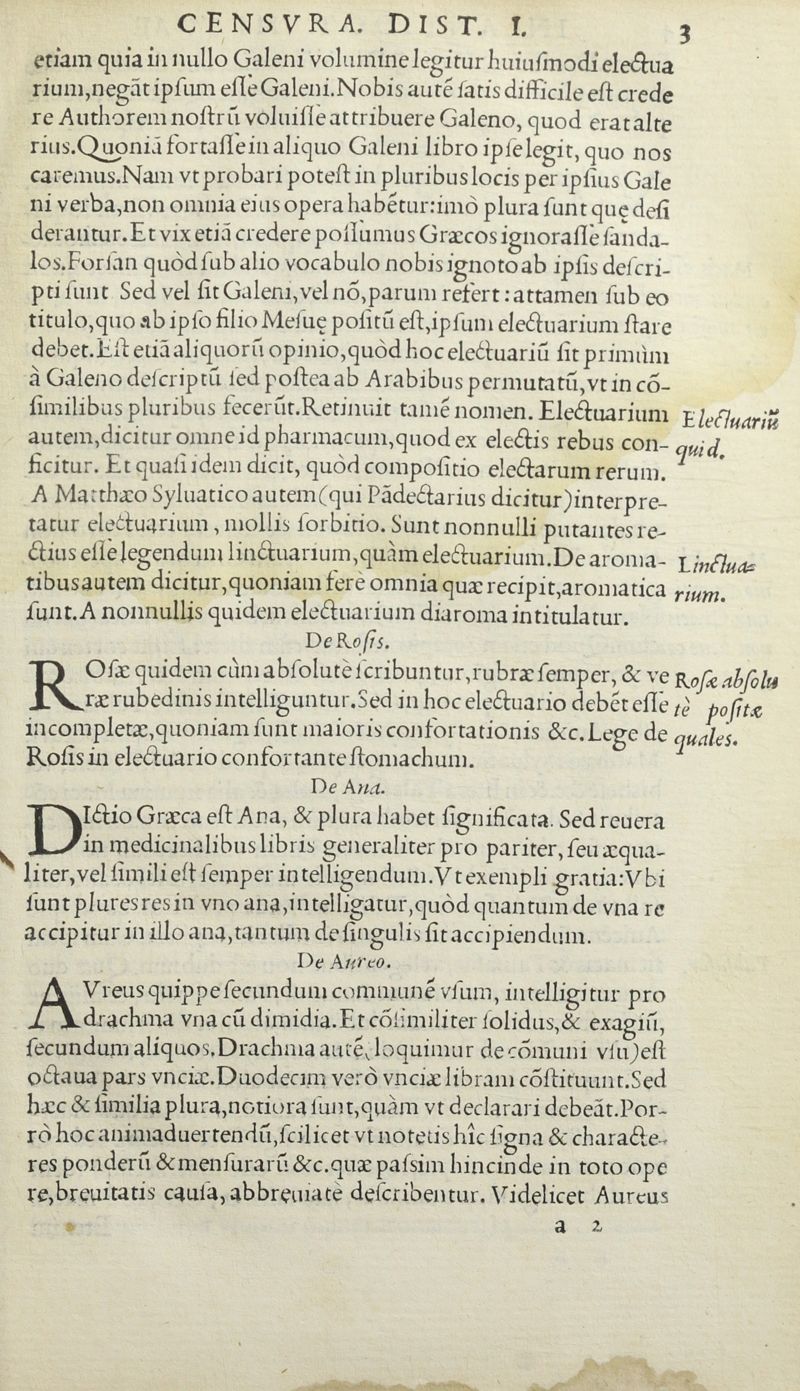 CENSVRA. DIST. I. 3
etiam quia in nullo Galeni volumine legitur huiuſmodi electua
rium,negāt ipſum eſſe Galeni.Nobis autē ſatis difficile eſt crede
re Authorem noſtrū voluiſſe attribuere Galeno, quod erat alte
rius.Quoniā fortaſſe in aliquo Galeni libro ipſe legit, quo nos
caremus.Nam vt probari poteſt in pluribus locis per ipſius Gale
ni verba,non omnia eius opera habētur:imò plura ſunt quę deſi
derantur.Et vix etiā credere poſſumus Græcos ignoraſſe ſanda-
los.Forſan quòd ſub alio vocabulo nobis ignoto ab ipſis deſcri-
pti ſunt Sed vel ſit Galeni,vel nō,parum refert: attamen ſub eo
titulo,quo ab ipſo filio Meſuę poſitū eſt,ipſum electuarium ſtare
debet.Eſt etiā aliquorū opinio,quòd hoc electuariū ſit primùm
à Galeno deſcriptū ſed poſtea ab Arabibus permutatū,vt in cō-
ſimilibus pluribus fecerūt.Retinuit tamē nomen. Electuarium
Electuariū
autem,dicitur omne id pharmacum,quod ex electis rebus con-
quid.
ficitur. Et quaſi idem dicit, quòd compoſitio electarum rerum.
A Matthæo Syluatico autem(qui Pādectarius dicitur)interpre-
tatur electuarium, mollis ſorbitio. Sunt nonnulli putantes re-
ctius eſſe legendum linctuarium,quàm electuarium.De aroma-
Linctua-
tibus autem dicitur,quoniam ferè omnia quæ recipit,aromatica
rium.
ſunt.A nonnullis quidem electuarium diaroma intitulatur.
De Roſis.
ROſæ quidem cùm abſolutè ſcribuntur,rubræ ſemper, & ve
Roſæ abſolu
ræ rubedinis intelliguntur.Sed in hoc electuario debēt eſſe
tè poſitæ
incompletæ,quoniam ſunt maioris confortationis &c.Lege de
quales.
Roſis in electuario confortante ſtomachum.
De Ana.
DIctio Græca eſt Ana, & plura habet ſignificata. Sed reuera
in medicinalibus libris generaliter pro pariter, ſeu æqua-
liter,vel ſimili eſt ſemper intelligendum.Vt exempli gratia:Vbi
ſunt plures res in vno ana,intelligatur,quòd quantum de vna re
accipitur in illo ana,tantum de ſingulis ſit accipiendum.
De Aureo.
AVreus quippe ſecundum communē vſum, intelligitur pro
drachma vna cū dimidia.Et cōſimiliter ſolidus,& exagiū,
ſecundum aliquos.Drachma autē(loquimur de cōmuni vſu)eſt
octaua pars vnciæ.Duodecim verò vnciæ libram cōſtituunt.Sed
hæc & ſimilia plura,notiora ſunt,quàm vt declarari debeāt.Por-
rò hoc animaduertendū,ſcilicet vt notetis hîc ſigna & characte-
res ponderū & menſurarū &c.quæ paſsim hinc inde in toto ope
re,breuitatis cauſa, abbreuiatè deſcribentur. Videlicet Aureus
a 2